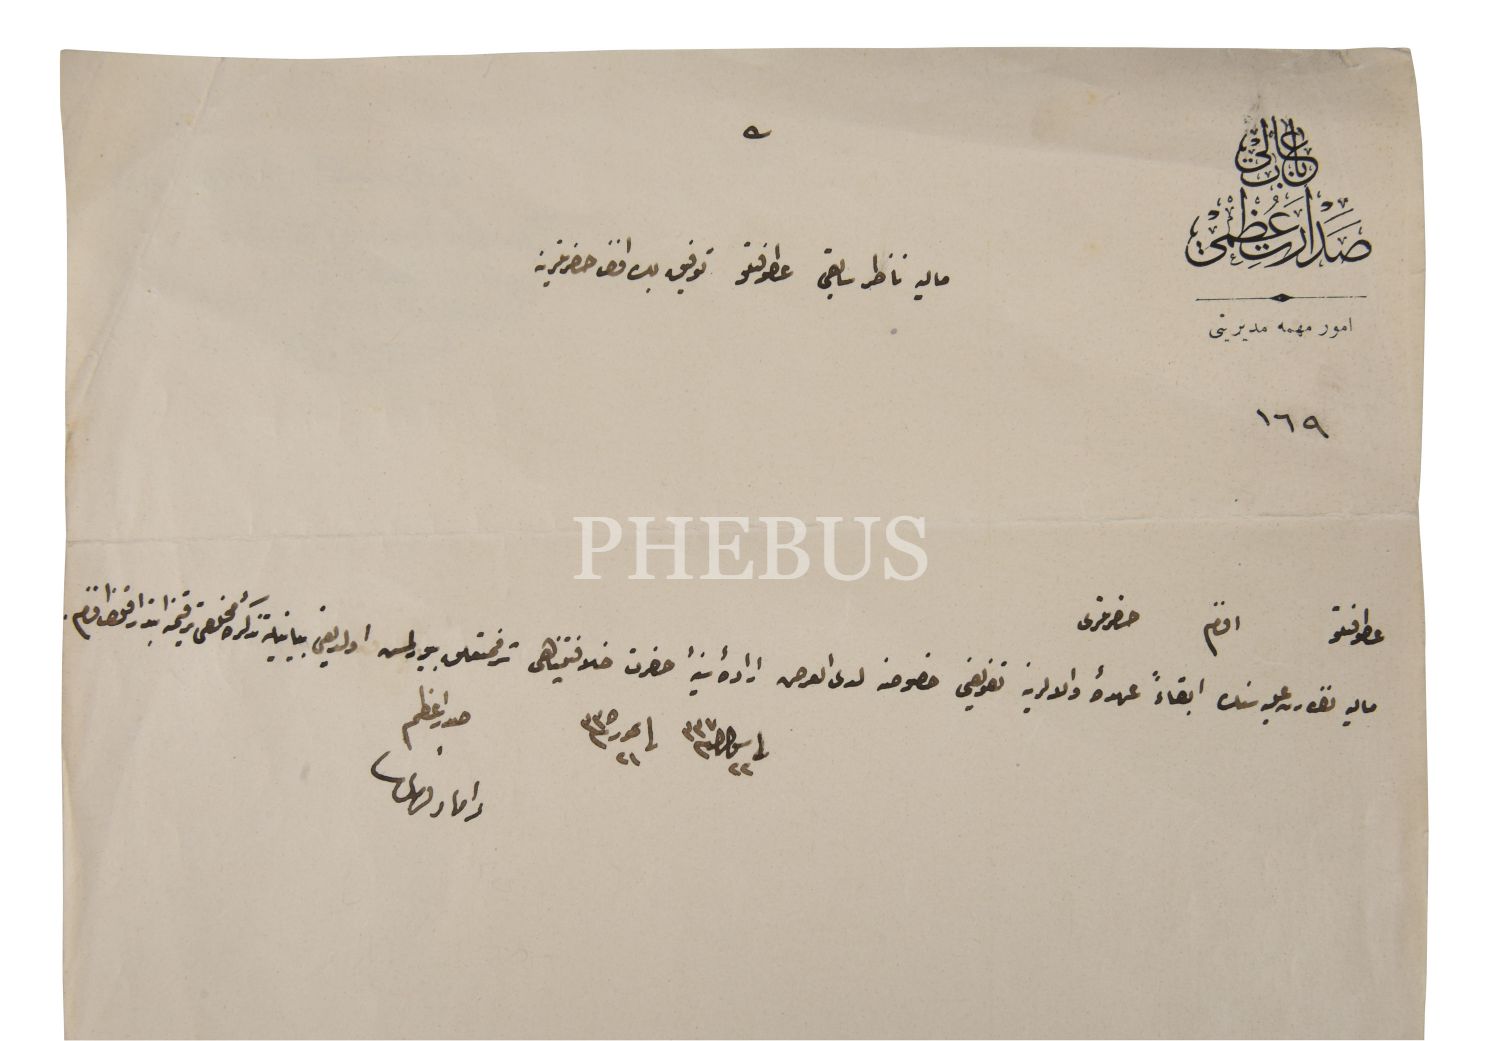 باب عالی
صدارت عظمی
امور مهمه مدیریتی
١٦٩
مالیه ناظر سابقی عطوفتلو توفیق بك افندی حضرتلرینه
PHEBUS
عطوفتلو افندم حضرتلری
مالیه نظارت علیه سنك ابقاءً عهدهٔ والالرینه تفویضی خصوصنه لدی العرض ارادهٔ سنیهٔ حضرت خلافتپناهی شرفمتعلق بیورلمش اولدیغی بیانیله تذكرهٔ مخلصی ترقیمنه ابتدار قلندی افندم
فی ٣٣٧ ٢٢
فی ٣٣٥ ٢١
صدر اعظم
داماد فرید